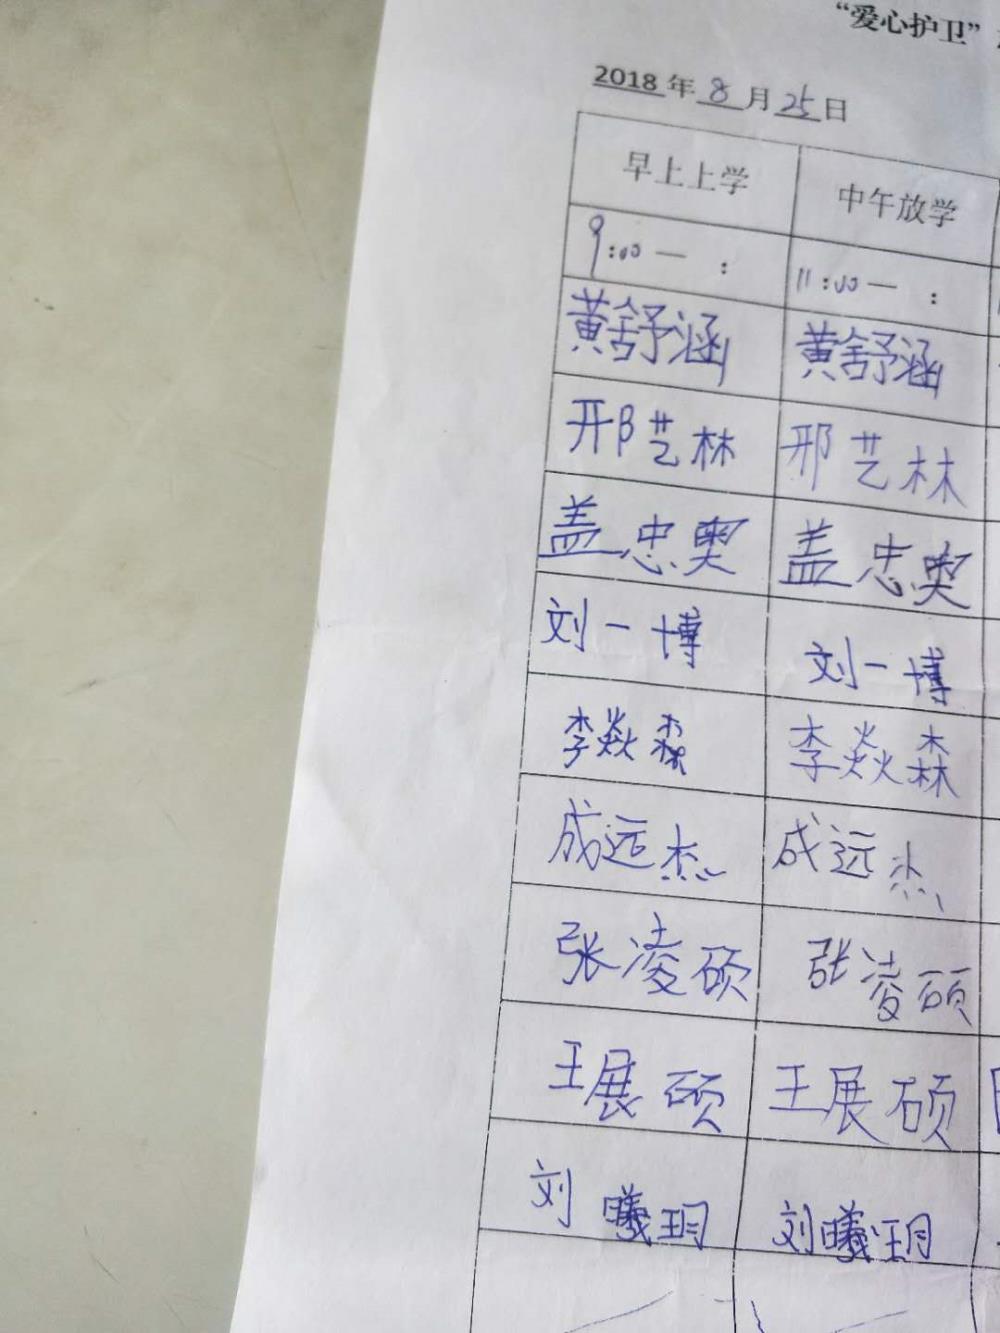 “爱心护卫”
2018年8月25日
早上上学 中午放学
9:00— : 11:00— :
黄舒涵 黄舒涵
邢艺林 邢艺林
盖忠奥 盖忠奥
刘一博 刘一博
李焱森 李焱森
成远杰 成远杰
张凌硕 张凌硕
王展硕 王展硕
刘曦玥 刘曦玥